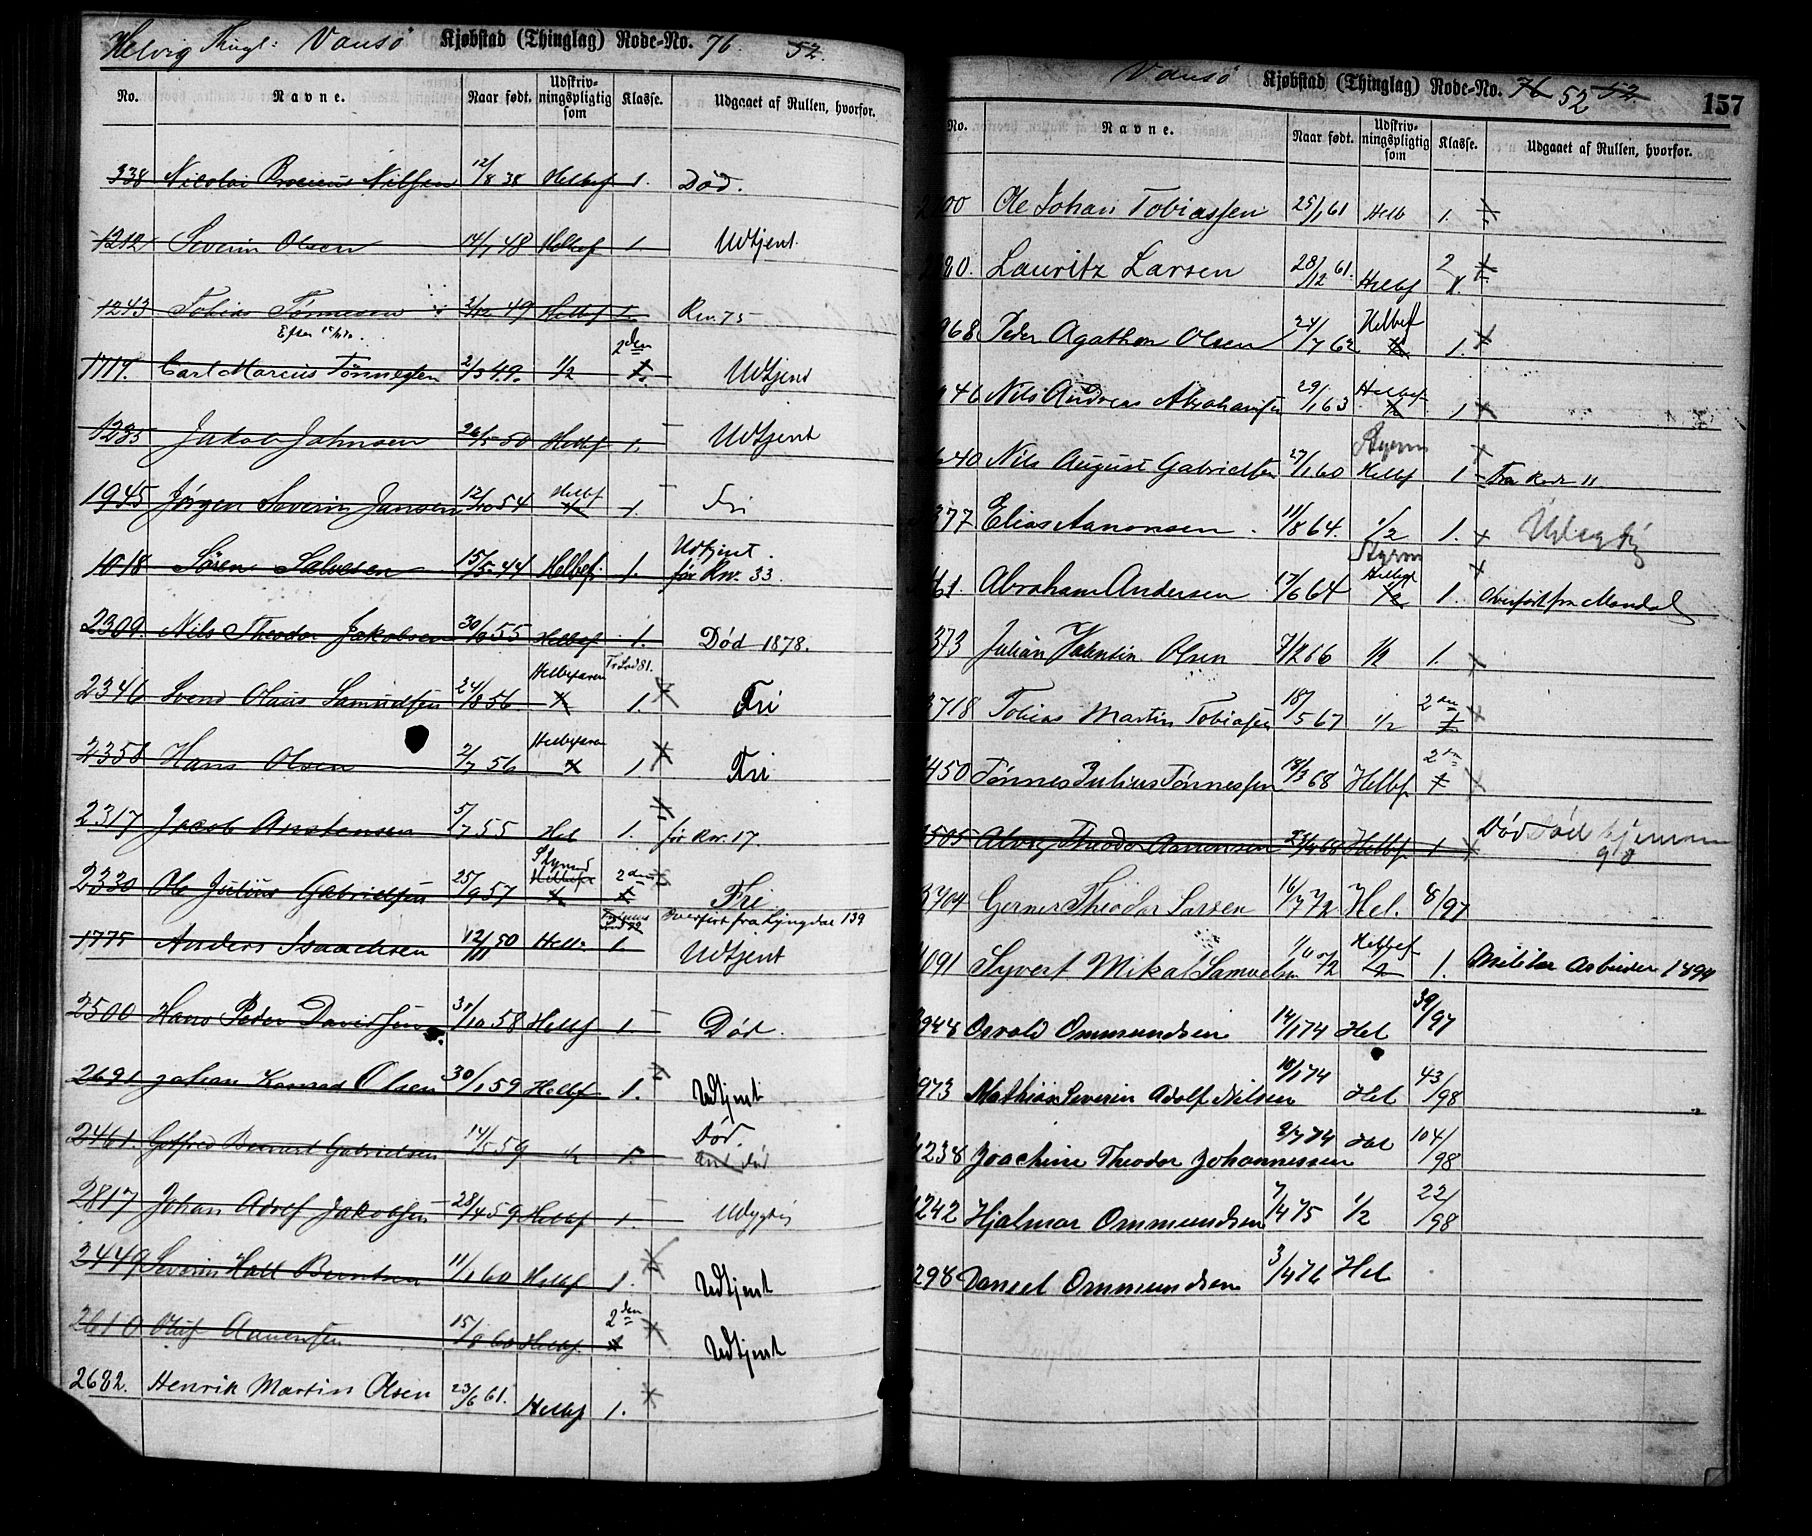 Helvig Thingl: Vansö Kjøbstad (Thinglag) Rode-No. 76. 52.
No. Navne. Naar født. Udskriv-ningspligtig som Klasse. Udgaaet af Rullen, hvorfor.
338 Nicolai Nilsen 12/8 38 Helbef 1. Död.
1212 Severin Olsen 14/1 48 Helbef 1. Udtjent.
1243 Tobias Tönnesen 49 Helbef 1. Rev. 75
1719. Carl Marcus Tönnesen 2/3 49. 1/2 2den 1. Udtjent
1285 Jakob Johnsen 26/5 50 Helbef 1. Udtjent
1945 Jörgen Severin Jansen 12/10 54 Helbf 1. Fri
1018 Sören Salvesen 15/5 44 Helbef. 1. Udtjent. før Rev. 33.
2309. Nils Theodor Jakobsen 30/ 55 Helbef 1. Död 1878.
2346 Svend Olaus Samuelsen 24/8 56 Helbefaren 1. Fri
2358 Hans Olsen 2/7 56 Helbefaren 1 Fri
2317 Jacob Anstensen 5/7 55 Hel 1. før Rev. 17.
2330 Ole Julius Gabrielsen 25/9 57 Styrmd Helbef 2den Fri
Overført fra Lyngdal 139
1775 Anders Isaachsen 12/11 50 Helb 1. Udtjent
2500 Hans Peder Davidsen 31/10 58 Helbf 1. Död.
2691 Johan Konrad Olsen 30/1 59 Helbf 1. Udtjent
2461. Gotfred Bernt Gabrielsen 14/5 59 1. Död.
2817 Johan Adolf Jakobsen 28/4 59 Helbf 1. Udygtig
2449 Severin Hall Berntsen 11/1 60 Helbf 1. Udtjent
2610 Oluf Aanensen 15/8 60 Helbf. 2den 1 Udtjent
2682. Henrik Martin Olsen 23/6 61. Helbf 1.
Vansö Kjøbstad (Thinglag) Rode-No. 76 52 52 157
No. Navne. Naar født. Udskriv-ningspligtig som Klasse. Udgaaet af Rullen, hvorfor.
00 Ole Johan Tobiassen 25/1 61 Helb 1.
80. Lauritz Larsen 28/12 61. Helbf 2
968 Peder Agathon Olsen 24/7 62 Helbef 1.
46 Nils Andreas Abrahamsen 29/1 63 Helbef 1
640 Nils August Gabrielsen 27/1 60 Styrm Helbf 1 Fra Rode 11
377 Elias Aanonsen. 11/8 64. 1/2 1. Udygtig
61. Abraham Andersen 17/6 64 Styrm Helbef 1/2 1. Overført fra Mandal
373 Julian Valentin Olsen 7/2 66 1/2 1.
3718 Tobias Martin Tobiasen 18/5 67 1/2 2den 1
450 Tönnes Julius Tönnessen 18/3 68 Helbf 2den 1
3505 Theodor Aanonsen 68 Helbf 1 Död
3704 Gerner Theodor Larsen 16/7 72 Hel. 8/97
4091 Syvert Mikal Samuelsen 72 Helbef 1/2 1. Militær Arbeider 1894
3948 Osvald Ommundsen 14/1 74 Hel 39/97
3973 Mathias Severin Adolf Nilsen 10/1 74 Hel 43/98
4238 Joachim Theodor Johannessen 2/7 74 Hel 104/98
4242 Hjalmar Ommundsen 7/4 75 1/2 22/98
298 Daniel Ommundsen 3/4 76 Hel